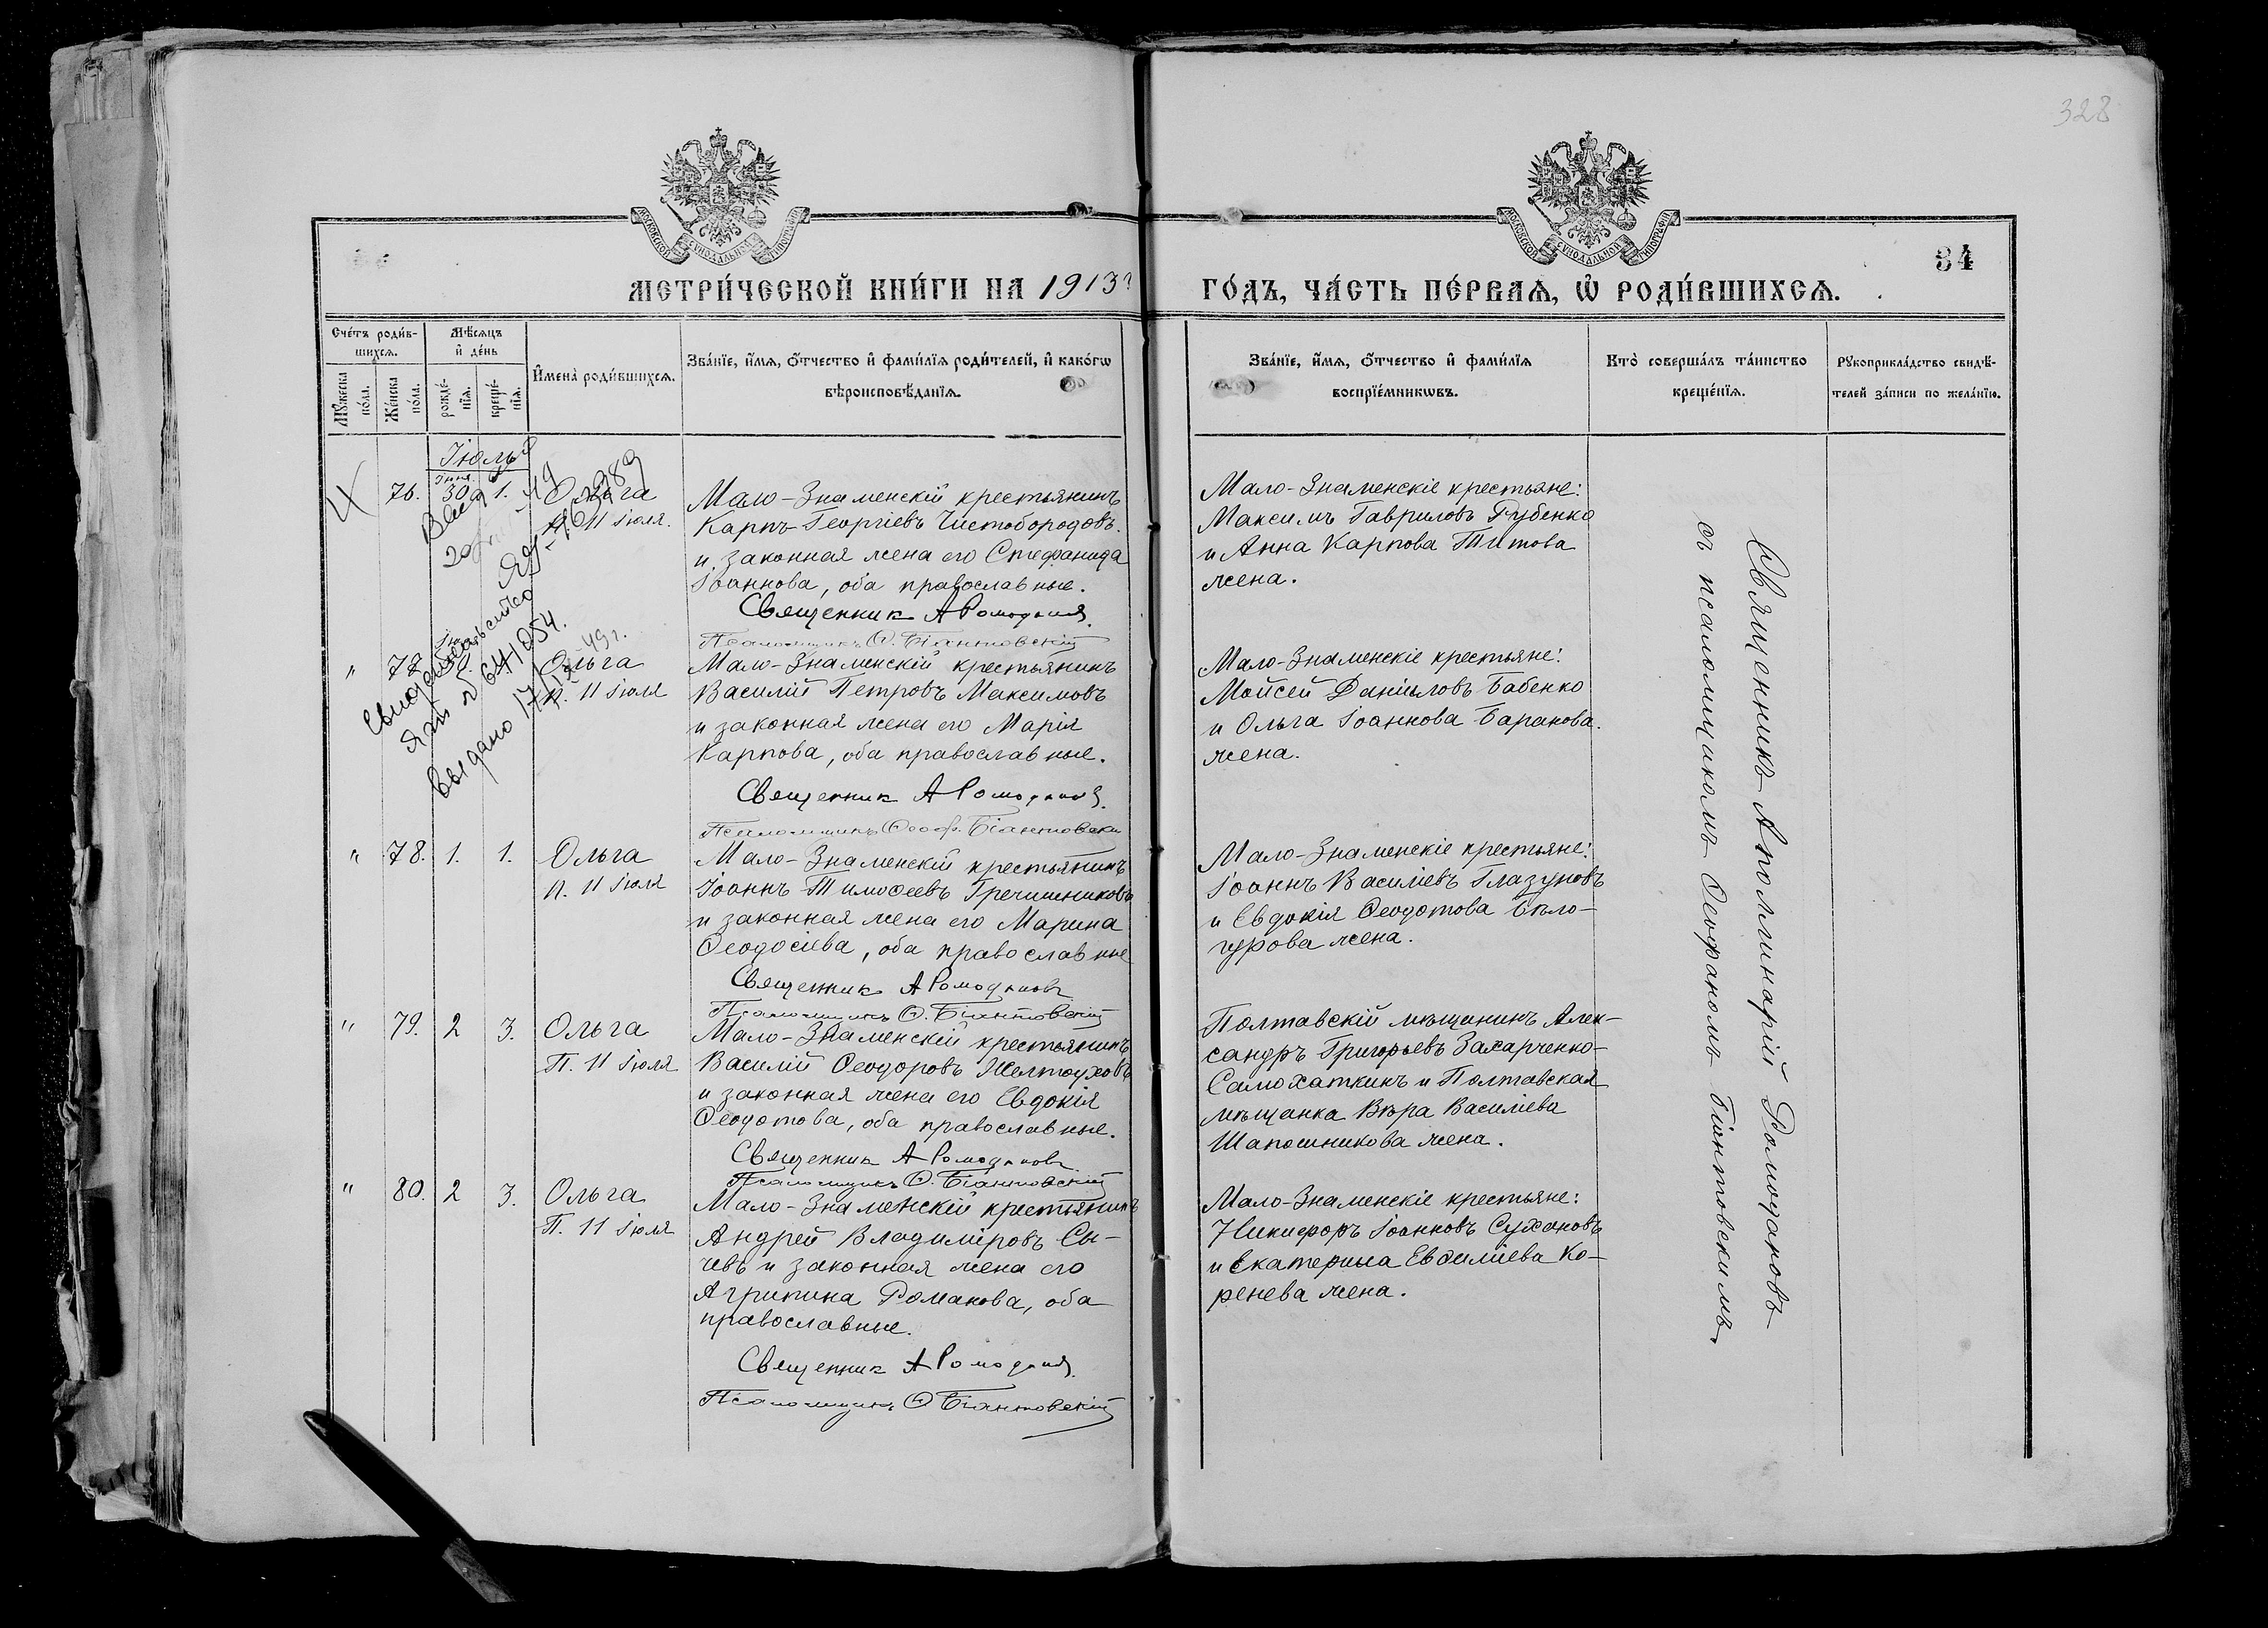 328
МОСКОВСКОЙ СУНОДАЛЬНОЙ ТИПОГРАФІИ
МОСКОВСКОЙ СУНОДАЛЬНОЙ ТИПОГРАФІИ
34
МЕТРИ́ЧЕСКОЙ КНИ́ГИ НА 1913
ГО́ДЪ, ЧА́СТЬ ПЕ́РВАѦ, Ѡ҆ РОДИ́ВШИХСѦ.
Сче́тъ роди́в-
шихсѧ.
Мꙋ́жеска по́ла.
Же́нска по́ла.
Мѣ́сѧцъ
и҆ де́нь
рожде́-
нїѧ.
креще́-
нїѧ.
И҆мена̀ роди́вшихсѧ.
Зва́нїе, и҆́мѧ, ѻ҆́тчество и҆ фами́лїѧ роди́телей, и҆ како́гѡ
вѣроисповѣ́данїѧ.
Зва́нїе, и҆́мѧ, ѻ҆́тчество и҆ фами́лїѧ
воспрїе́мникѡвъ.
Кто̀ соверша́лъ та́инство
креще́нїѧ.
Рꙋкоприкла́дство свидѣ́-
телей за́писи по жела́нїю.
Іюль
76. 30 1. Ольга
п. 11 іюля.
Мало-Знаменскій крестьянинъ
Карпъ Георгіевъ Чистобородовъ
и законная жена его Стефанида
Іоаннова, оба православные.
Священник А Ромоданов
Псаломщикъ Ѳ. Біантовскій
Мало-Знаменскіе крестьяне:
Максимъ Гавриловъ Рубенко
и Анна Карпова Титова
жена.
Свидетельство
выдано 17/12-49 г.
" 77 Ольга
п. 11 іюля
Мало-Знаменскій крестьянинъ
Василій Петровъ Максимовъ
и законная жена его Марія
Карпова, оба православные.
Священник А Ромоданов
Псаломщикъ Ѳеоф. Біантовски
Мало-Знаменскіе крестьяне:
Мойсей Даніиловъ Бабенко
и Ольга Іоаннова Баранова
жена.
" 78. 1. 1. Ольга
п. 11 іюля
Мало-Знаменскій крестьянинъ
Іоаннъ Тимоѳеевъ Гречишниковъ
и законная жена его Марина
Ѳеодосіева, оба православные
Священник А Ромоданов
Псаломщикъ Ѳ. Біантовскій
Мало-Знаменскіе крестьяне:
Іоаннъ Василіевъ Глазуновъ
и Евдокія Ѳеодотова Бѣло-
гурова жена.
" 79. 2 3. Ольга
П. 11 іюля
Мало-Знаменскій крестьянинъ
Василій Ѳеодоровъ Желтоуховъ
и законная жена его Евдокія
Ѳеодотова, оба православные.
Священник А Ромоданов
Псаломщикъ Ѳ. Біантовскій
Полтавскій мѣщанинъ Алек-
сандръ Григорьевъ Захарченко-
Самохаткинъ и Полтавская
мѣщанка Вѣра Василіева
Шапошникова жена.
" 80. 2 3. Ольга
П. 11 іюля
Мало-Знаменскій крестьянинъ
Андрей Владиміровъ Сы-
чевъ и законная жена его
Агрипина Романова, оба
православные.
Священник А Ромоданов
Псаломщикъ Ѳ Біантовскій
Мало-Знаменскіе крестьяне:
Никифоръ Іоанновъ Сухановъ
и Екатерина Евѳиміева Ко-
ренева жена.
Священникъ Аполлинарій Ромодановъ
съ псаломщикомъ Ѳеофаномъ Біантовскимъ.